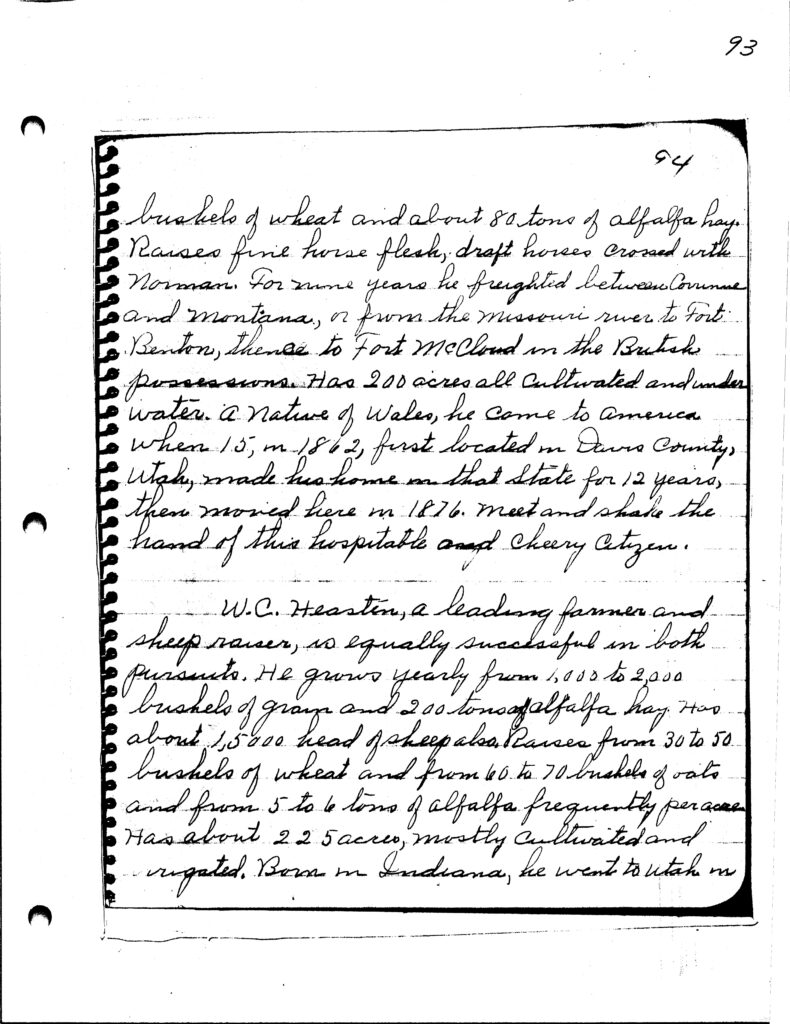 93
94
bushels of wheat and about 80 tons of alfalfa hay.
Raises fine horse flesh, draft horses crossed with
Norman. For nine years he freighted between Corinne
and Montana, or from the Missouri river to Fort
Benton, thence to Fort McCloud in the British
possessions. Has 200 acres all cultivated and under
water. A Native of Wales, he came to America
when 15, in 1862, first located in Davis County,
Utah, made his home in that State for 12 years,
then moved here in 1876. Meet and shake the
hand of this hospitable and cheery citizen.
W.C. Heasten, a leading farmer and
sheep raiser, is equally successful in both
pursuits. He grows yearly from 1,000 to 2,000
bushels of grain and 200 tons of alfalfa hay. Has
about 1,5000 head of sheep also. Raises from 30 to 50
bushels of wheat and from 60 to 70 bushels of oats
and from 5 to 6 tons of alfalfa frequently per acre
Has about 225 acres, mostly cultivated and
irrigated. Born in Indiana, he went to Utah in